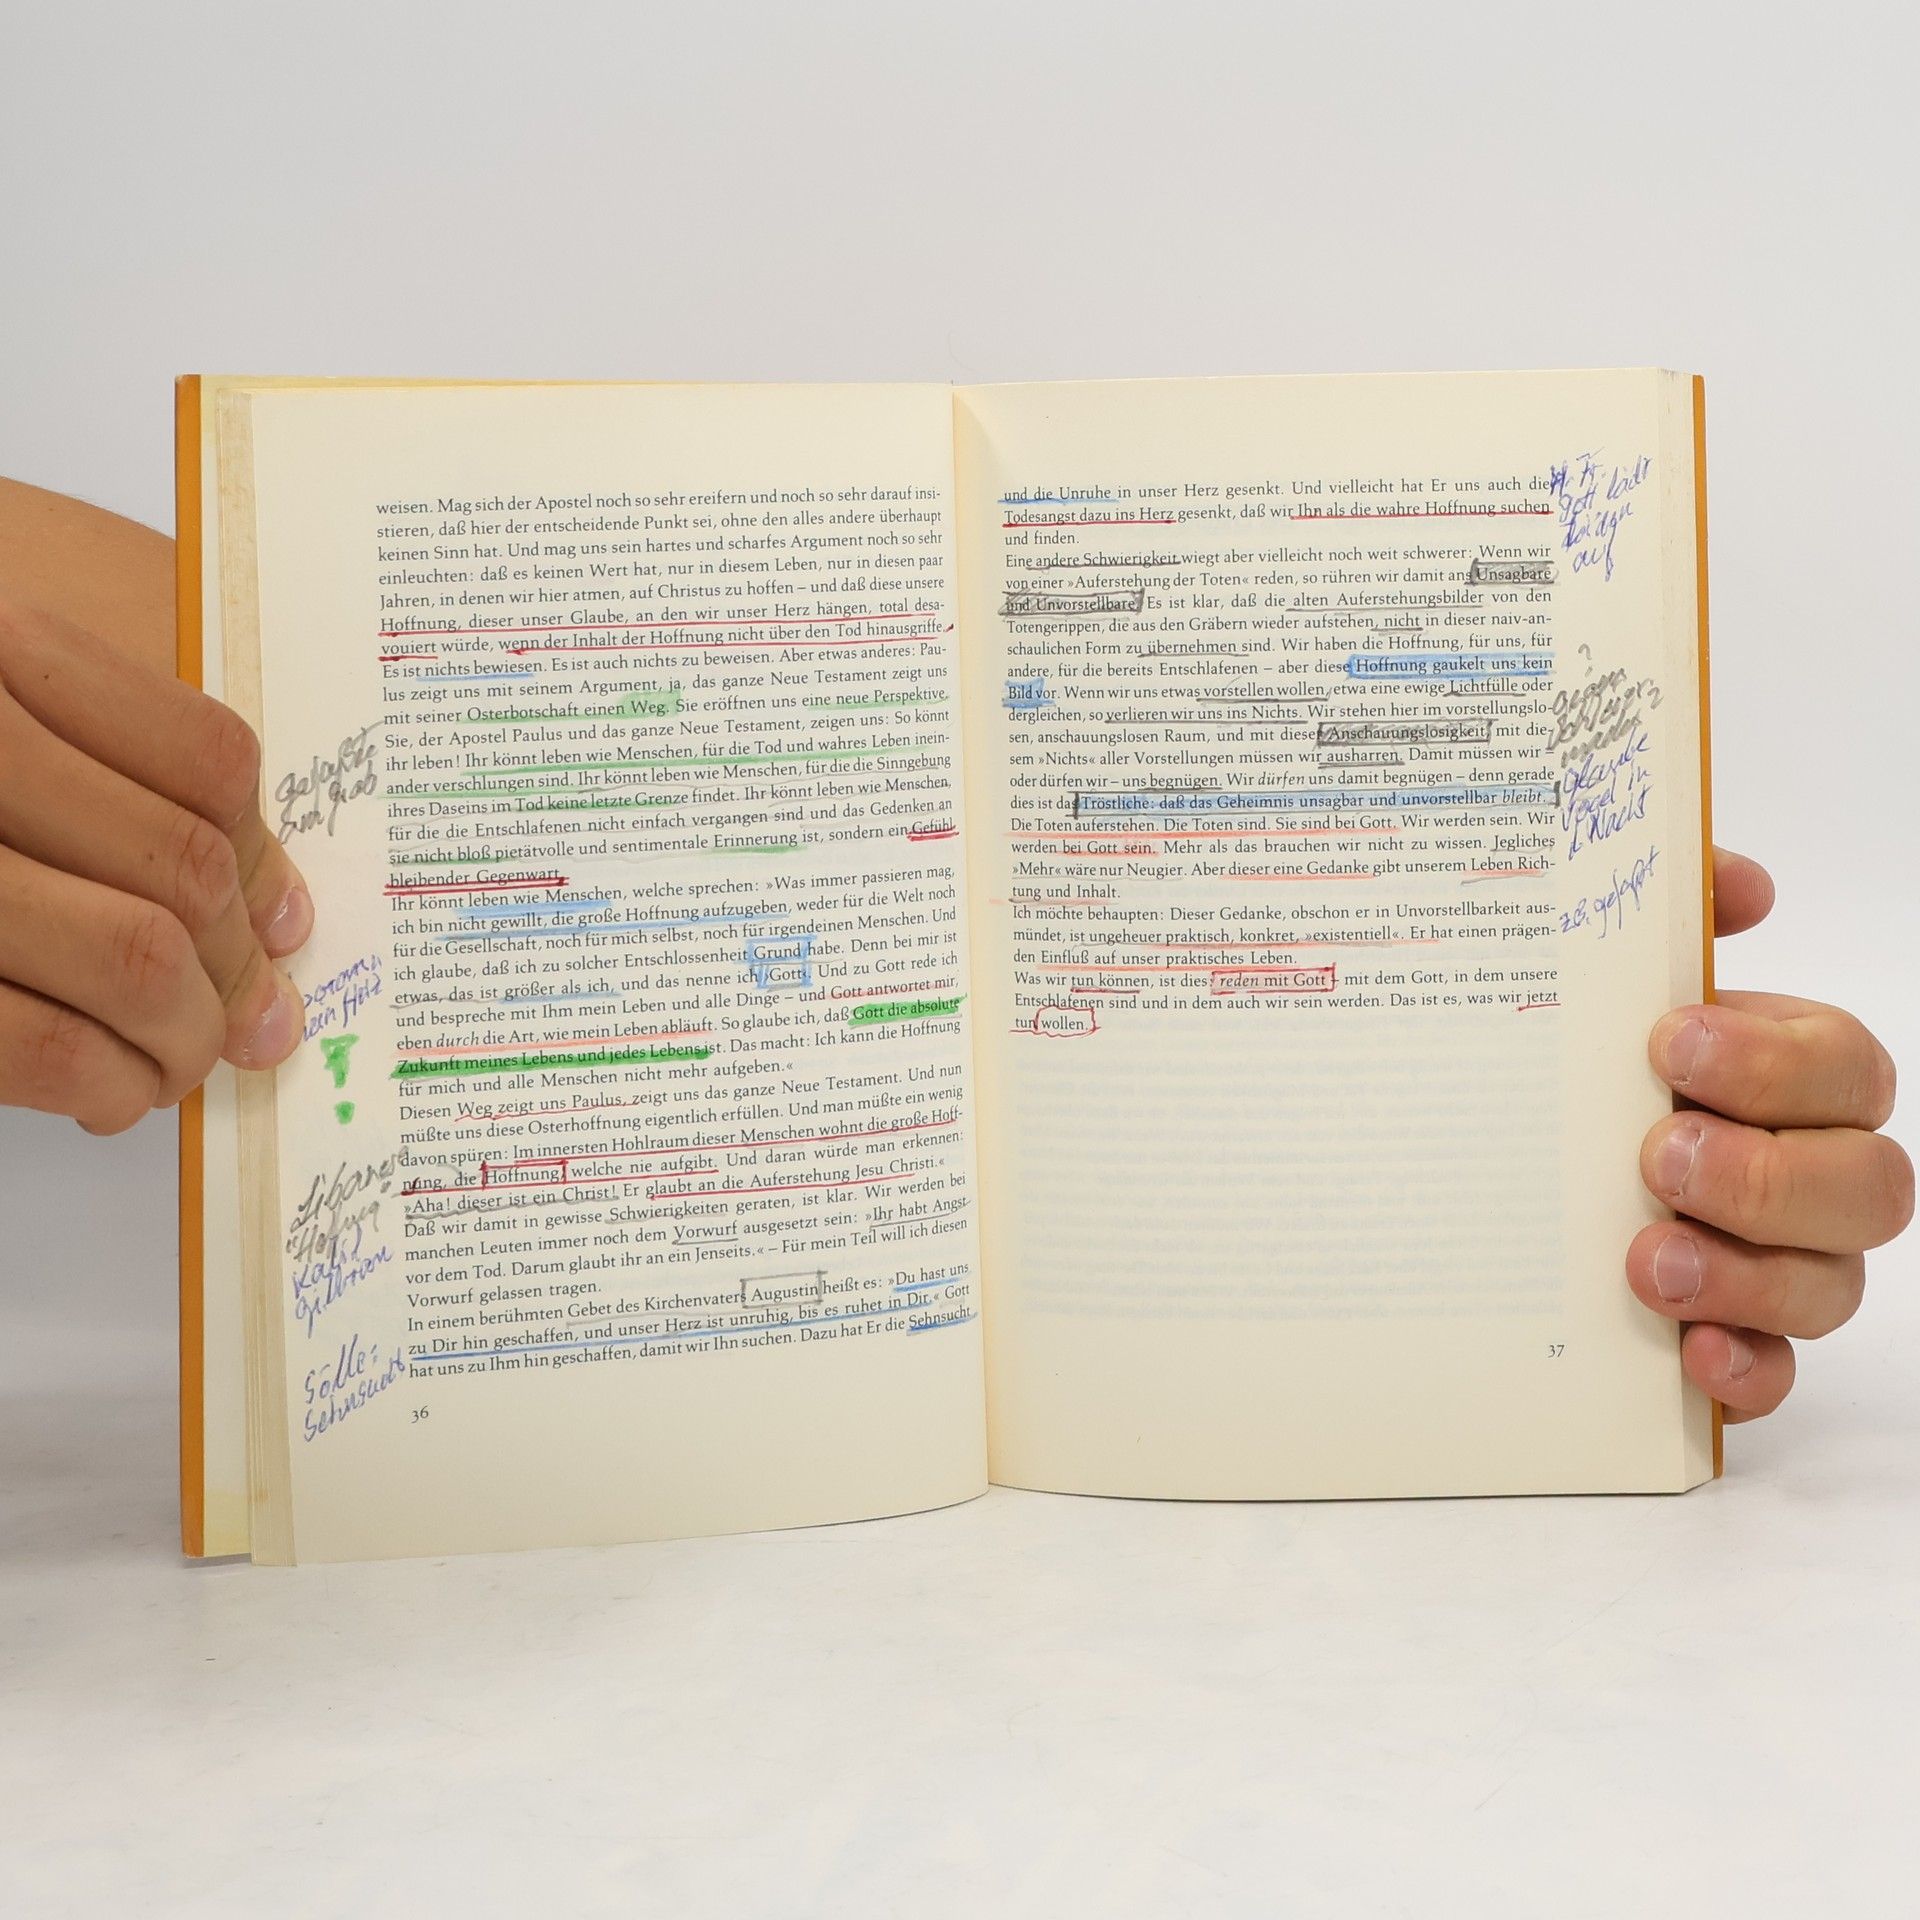 weisen. Mag sich der Apostel noch so sehr ereifern und noch so sehr darauf insi-
stieren, daß hier der entscheidende Punkt sei, ohne den alles andere überhaupt
keinen Sinn hat. Und mag uns sein hartes und scharfes Argument noch so sehr
einleuchten: daß es keinen Wert hat, nur in diesem Leben, nur in diesen paar
Jahren, in denen wir hier atmen, auf Christus zu hoffen – und daß diese unsere
Hoffnung, dieser unser Glaube, an den wir unser Herz hängen, total desa-
vouiert würde, wenn der Inhalt der Hoffnung nicht über den Tod hinausgriffe.
Es ist nichts bewiesen. Es ist auch nichts zu beweisen. Aber etwas anderes: Pau-
lus zeigt uns mit seinem Argument, ja, das ganze Neue Testament zeigt uns
mit seiner Osterbotschaft einen Weg. Sie eröffnen uns eine neue Perspektive.
Sie, der Apostel Paulus und das ganze Neue Testament, zeigen uns: So könnt
ihr leben! Ihr könnt leben wie Menschen, für die Tod und wahres Leben inein-
ander verschlungen sind. Ihr könnt leben wie Menschen, für die die Sinngebung
ihres Daseins im Tod keine letzte Grenze findet. Ihr könnt leben wie Menschen,
für die die Entschlafenen nicht einfach vergangen sind und das Gedenken an
sie nicht bloß pietätvolle und sentimentale Erinnerung ist, sondern ein Gefühl
bleibender Gegenwart.
Ihr könnt leben wie Menschen, welche sprechen: »Was immer passieren mag,
ich bin nicht gewillt, die große Hoffnung aufzugeben, weder für die Welt noch
für die Gesellschaft, noch für mich selbst, noch für irgendeinen Menschen. Und
ich glaube, daß ich zu solcher Entschlossenheit Grund habe. Denn bei mir ist
etwas, das ist größer als ich, und das nenne ich ›Gott‹. Und zu Gott rede ich
und bespreche mit Ihm mein Leben und alle Dinge – und Gott antwortet mir,
eben durch die Art, wie mein Leben abläuft. So glaube ich, daß Gott die absolute
Zukunft meines Lebens und jedes Lebens ist. Das macht: Ich kann die Hoffnung
für mich und alle Menschen nicht mehr aufgeben.«
Diesen Weg zeigt uns Paulus, zeigt uns das ganze Neue Testament. Und nun
müßte uns diese Osterhoffnung eigentlich erfüllen. Und man müßte ein wenig
davon spüren: Im innersten Hohlraum dieser Menschen wohnt die große Hoff-
nung, die Hoffnung, welche nie aufgibt. Und daran würde man erkennen:
»Aha! dieser ist ein Christ! Er glaubt an die Auferstehung Jesu Christi.«
Daß wir damit in gewisse Schwierigkeiten geraten, ist klar. Wir werden bei
manchen Leuten immer noch dem Vorwurf ausgesetzt sein: »Ihr habt Angst
vor dem Tod. Darum glaubt ihr an ein Jenseits.« – Für mein Teil will ich diesen
Vorwurf gelassen tragen.
In einem berühmten Gebet des Kirchenvaters Augustin heißt es: »Du hast uns
zu Dir hin geschaffen, und unser Herz ist unruhig, bis es ruhet in Dir.« Gott
hat uns zu Ihm hin geschaffen, damit wir Ihn suchen. Dazu hat Er die Sehnsucht
36
am Grab
mein Herz
!
Sölle:
Sehnsucht
und die Unruhe in unser Herz gesenkt. Und vielleicht hat Er uns auch die
Todesangst dazu ins Herz gesenkt, daß wir Ihn als die wahre Hoffnung suchen
und finden.
Eine andere Schwierigkeit wiegt aber vielleicht noch weit schwerer: Wenn wir
von einer »Auferstehung der Toten« reden, so rühren wir damit ans Unsagbare
und Unvorstellbare. Es ist klar, daß die alten Auferstehungsbilder von den
Totengerippen, die aus den Gräbern wieder aufstehen, nicht in dieser naiv-an-
schaulichen Form zu übernehmen sind. Wir haben die Hoffnung, für uns, für
andere, für die bereits Entschlafenen – aber diese Hoffnung gaukelt uns kein
Bild vor. Wenn wir uns etwas vorstellen wollen, etwa eine ewige Lichtfülle oder
dergleichen, so verlieren wir uns ins Nichts. Wir stehen hier im vorstellungslo-
sen, anschauungslosen Raum, und mit dieser Anschauungslosigkeit, mit die-
sem »Nichts« aller Vorstellungen müssen wir ausharren. Damit müssen wir –
oder dürfen wir – uns begnügen. Wir dürfen uns damit begnügen – denn gerade
dies ist das Tröstliche: daß das Geheimnis unsagbar und unvorstellbar bleibt.
Die Toten auferstehen. Die Toten sind. Sie sind bei Gott. Wir werden sein. Wir
werden bei Gott sein. Mehr als das brauchen wir nicht zu wissen. Jegliches
»Mehr« wäre nur Neugier. Aber dieser eine Gedanke gibt unserem Leben Rich-
tung und Inhalt.
Ich möchte behaupten: Dieser Gedanke, obschon er in Unvorstellbarkeit aus-
mündet, ist ungeheuer praktisch, konkret, »existentiell«. Er hat einen prägen-
den Einfluß auf unser praktisches Leben.
Was wir tun können, ist dies: reden mit Gott – mit dem Gott, in dem unsere
Entschlafenen sind und in dem auch wir sein werden. Das ist es, was wir jetzt
tun wollen.
37
Gott lädt
auf
?
Glaube
Vogel in
d. Nacht
z.B. gefasst